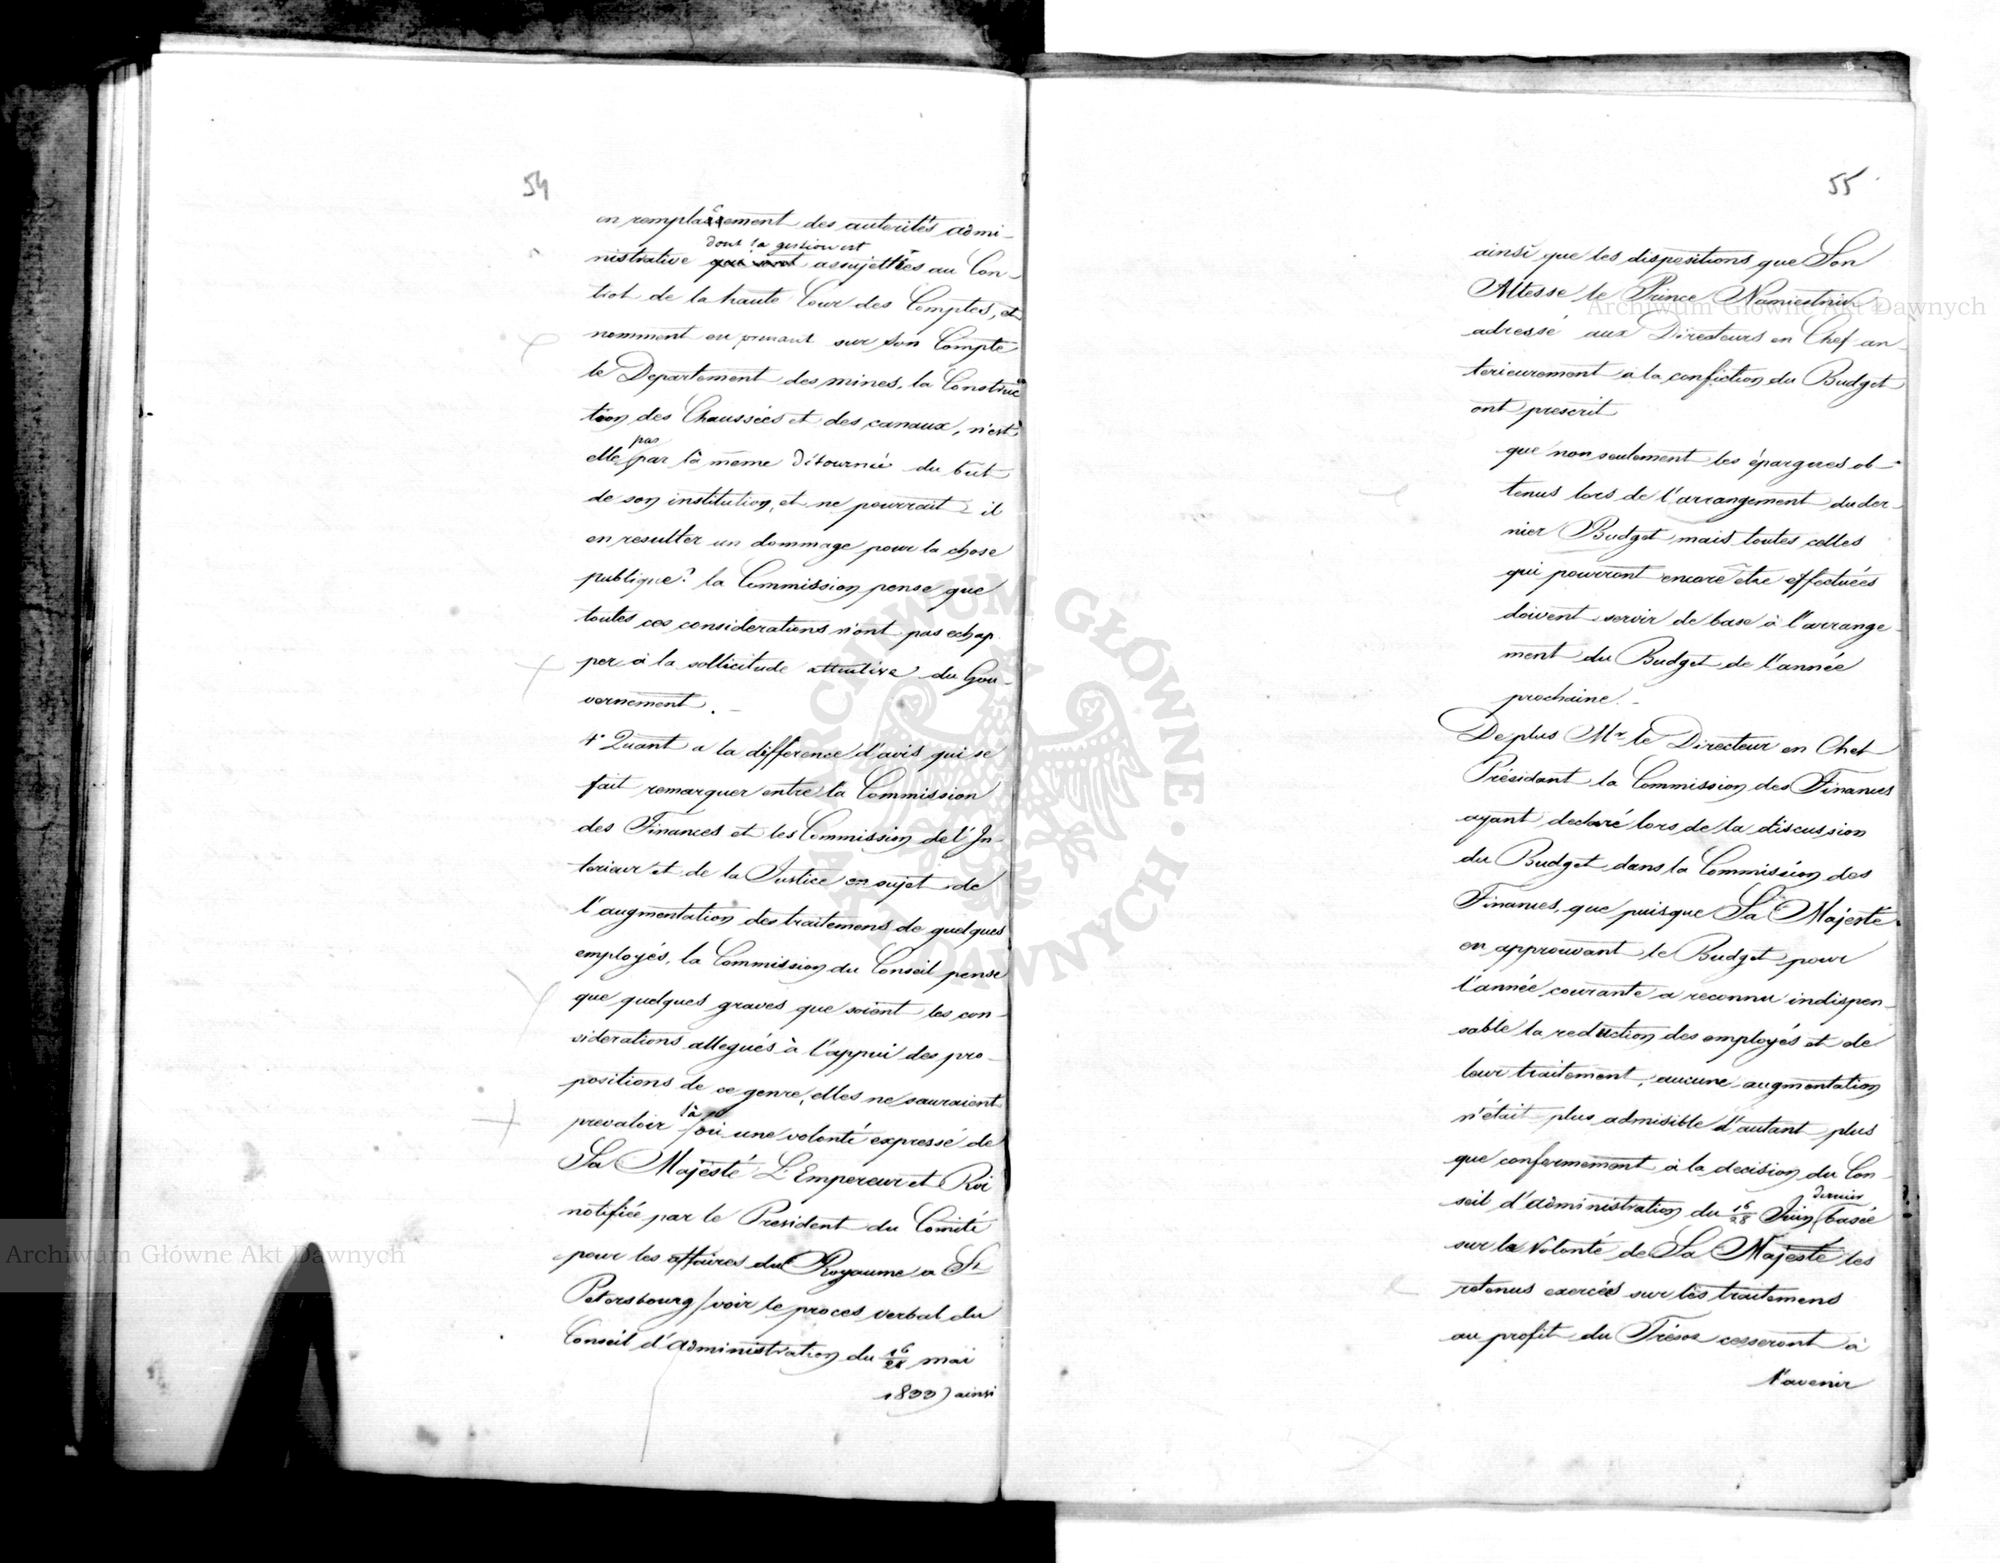 54
en remplacement des autorités admi-
nistrative dont la gestion est assujettiés au Con-
trol de la haute Cour des Comptes, et
nomment en prenant sur son Compte
le Departement des mines, la Construc
tion des Chaussées et des canaux, n'est
elle pas par là même détournée du but
de son institution, et ne pourrait-il
en resulter un dommage pour la chose
publique? la Commission pense que
toutes ces considerations n'ont pas echap
per à la sollicitude attentive du Gou-
vernement.-
4° Quant a la difference d'avis qui se
fait remarquer entre la Commission
des Finances et les Commission de l'In-
terieur et de la Justice en sujet de
l'augmentation des traitemens de quelques
employés, la Commission du Conseil pense
que quelques graves que soient les con-
siderations allegués à l'appui des pro-
positions de ce genre, elles ne sauraient
prevaloir là où une volonté expressé de
Sa Majesté L'Empereur et Roi
notifiée par le President du Comité
pour les affaires du Royaume a St
Petersbourg /voir le proces verbal du
Conseil d'administration du 16/28 mai
1833) ainsi
55
ainsi que les dispositions que Son
Altesse le Prince Namiestnik
adressé aux Directeurs en Chef an-
terieurement à la confiction du Budget
ont prescrit
que non seulement les épargnes ob-
tenus lors de l'arrangement du der-
nier Budget mais toutes celles
qui pourront encore etre effectuées
doivent servir de base à l'arrange-
ment du Budget de l'année
prochaine.-
De plus Mr le Directeur en Chef
Présidant la Commission des Finances
ayant declaré lors de la discussion
du Budget dans la Commission des
Finances, que puisque Sa Majesté
en approuvant le Budget pour
l'année courante a reconnu indispen-
sable la reduction des employés et de
leur traitement, aucune augmentation
n'était plus admisible d'autant plus
que conformement à la decision du Con-
seil d'administration du 16/28 Juin dernier basée
sur la Volonté de Sa Majesté les
retenus exercés sur les traitemens
au profit du Trésor cesseront à
l'avenir
Archiwum Główne Akt Dawnych
Archiwum Główne Akt Dawnych
ARCHIWUM GŁÓWNE AKT DAWNYCH